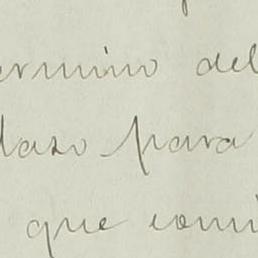 ermino del
lazo para
que comi